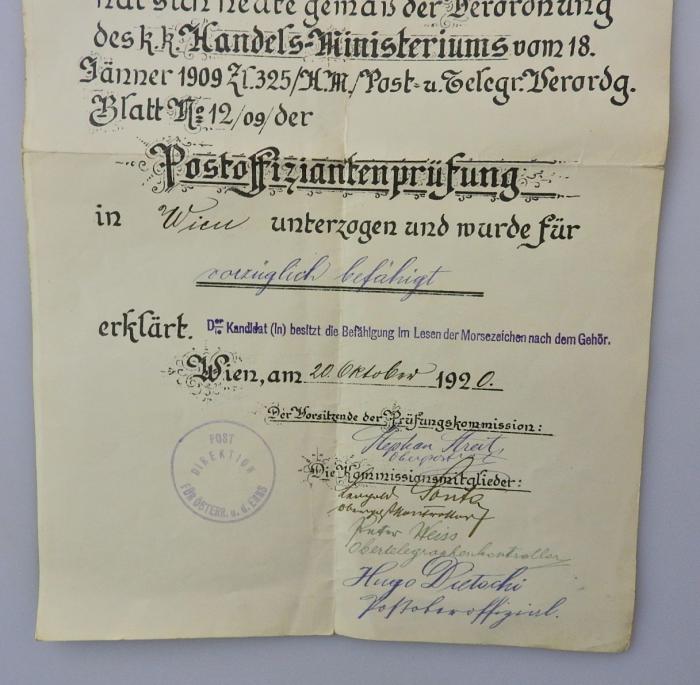 hat sich heute gemäß der Verordnung
des k.k. Handels-Ministeriums vom 18.
Jänner 1909 Zl. 325/H.M./Post- u. Telegr. Verordg.
Blatt No 12/09/der
Postoffiziantenprüfung
in Wien unterzogen und wurde für
vorzüglich befähigt
erklärt. Der/Die Kandidat (In) besitzt die Befähigung im Lesen der Morsezeichen nach dem Gehör.
Wien, am 20. Oktober 1920.
Der Vorsitzende der Prüfungskommission:
Stephan Streit
Die Kommissionsmitglieder:
Leopold
Oberpostkontrollor
Peter Weiss
Obertelegraphenkontrollor
Hugo Dietschi
Postoberoffizial.
POST
DIREKTION
FÜR ÖSTERR. o. d. ENNS